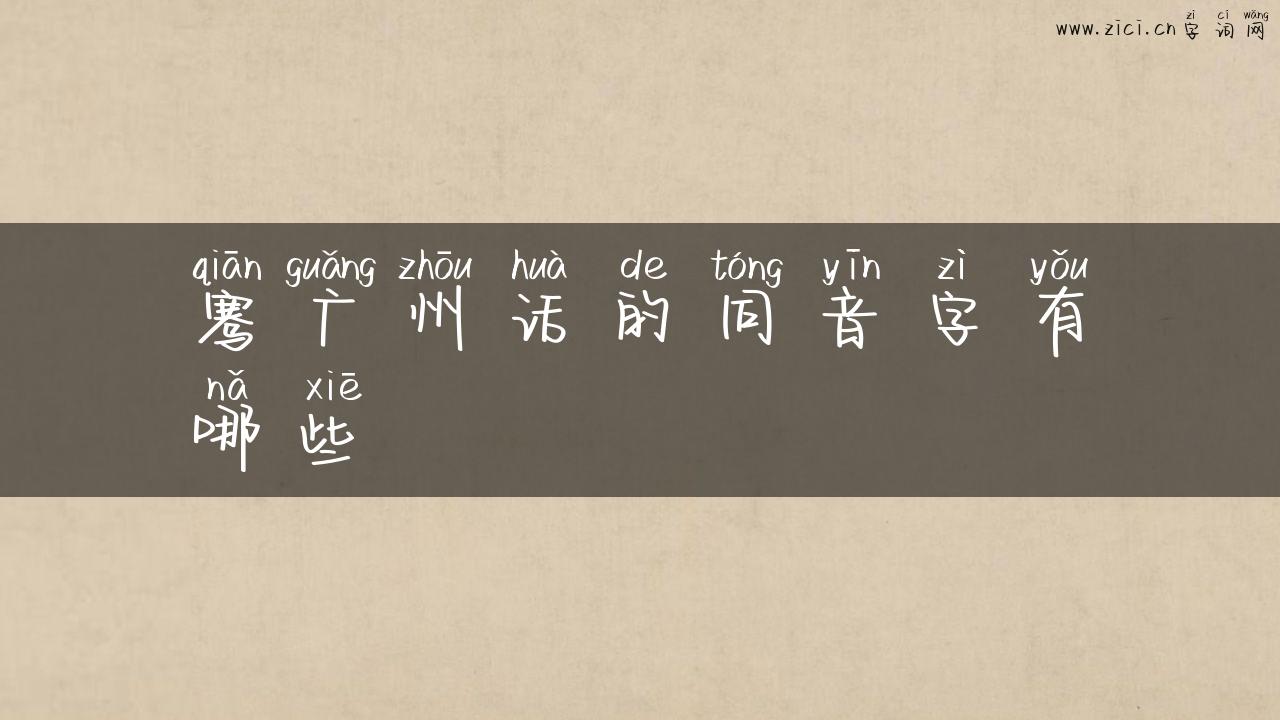 zì cí wǎng
www.zici.cn 字 词 网
qiān guǎng zhōu huà de tóng yīn zì yǒu
骞 广 州 话 的 同 音 字 有
nǎ xiē
哪 些